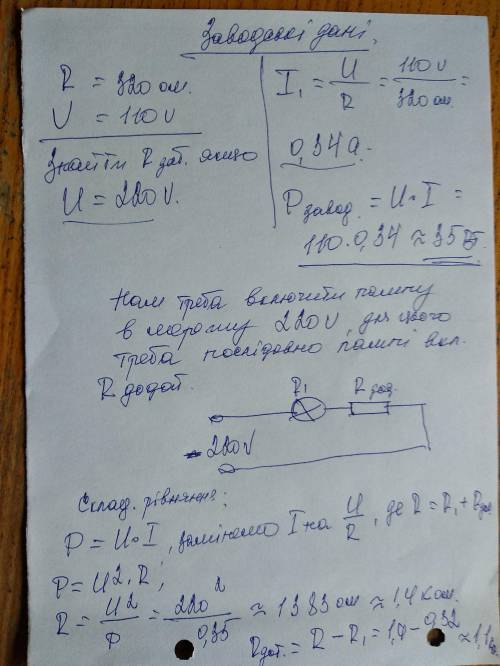 Заводські дані.
R = 320 ом.
V = 110 V
Знайти R дод. якщо
U = 220 V.
I₁ = U/R = 110 V/320 ом. =
0,34 а.
P завод. = U·I =
110·0,34 ≈ 35
Нам треба включити лампу
в мережу 220 V, для цього
треба послідовно лампі вкл.
R додат.
R₁ R дод.
220 V
Склад. рівняння:
P = U·I, замінемо I на U/R, де R = R₁ + R дод
P = U²·R;
R = U²/P = 220²/0,35 ≈ 1383 ом ≈ 1,4 ком.
R дот. = R − R₁ = 1,4 − 0,32 ≈ 1,1